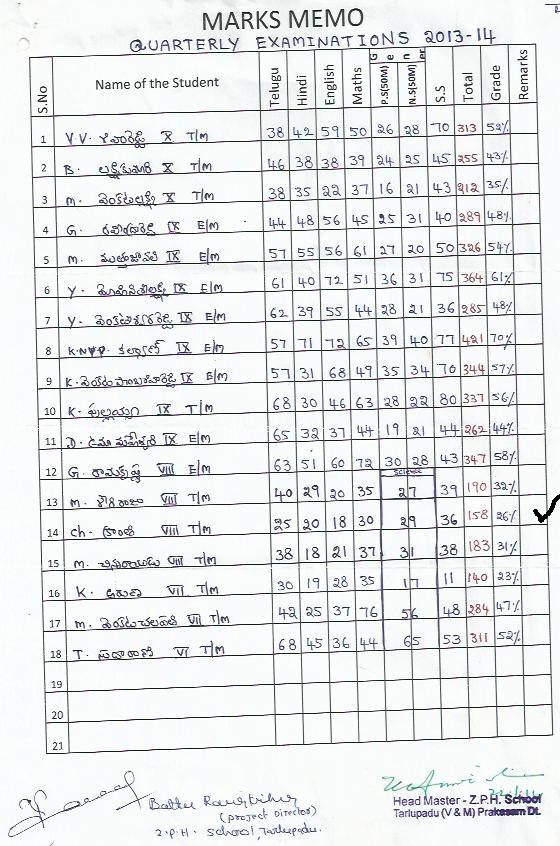 MARKS MEMO
QUARTERLY EXAMINATIONS 2013-14
S.No Name of the Student Telugu Hindi English Maths Gener P.S(50M) N.S(50M) S.S Total Grade Remarks
1 V.V. X T/M 38 42 59 50 26 28 70 313 52%
2 B. లక్ష్మీకుమారి X T/M 46 38 38 39 24 25 45 255 43%
3 M. వెంకటలక్ష్మి X T/M 38 35 22 37 16 21 43 212 35%
4 G. IX E/M 44 48 56 45 25 31 40 289 48%
5 M. IX E/M 57 55 56 61 27 20 50 326 54%
6 Y. IX E/M 61 40 72 51 36 31 75 364 61%
7 Y. వెంకటేశ్వరరెడ్డి IX E/M 62 39 55 44 28 21 36 285 48%
8 K.N.V.P. కళ్యాణ్ IX E/M 57 71 72 65 39 40 77 421 70%
9 K. IX E/M 57 31 68 49 35 34 70 344 57%
10 K. పుల్లయ్య IX T/M 68 30 46 63 28 22 80 337 56%
11 D. ఉమామహేశ్వరి IX E/M 65 32 37 44 19 21 44 262 44%
12 G. రామకృష్ణ VIII E/M 63 51 60 72 30 28 43 347 58%
Science
13 M. VIII T/M 40 29 20 35 27 39 190 32%
14 Ch. క్రాంతి VIII T/M 25 20 18 30 29 36 158 26%
15 M. చినరాయుడు VIII T/M 38 18 21 37 31 38 183 31%
16 K. అరుణ VII T/M 30 19 28 35 17 11 140 23%
17 M. వెంకటచలపతి VII T/M 42 25 37 76 56 48 284 47%
18 T. సుధారాణి VI T/M 68 45 36 44 65 53 311 52%
19
20
21
(Project Director)
Z.P.H. School, Tarlupadu.
Head Master - Z.P.H. School
Tarlupadu (V & M) Prakasam Dt.